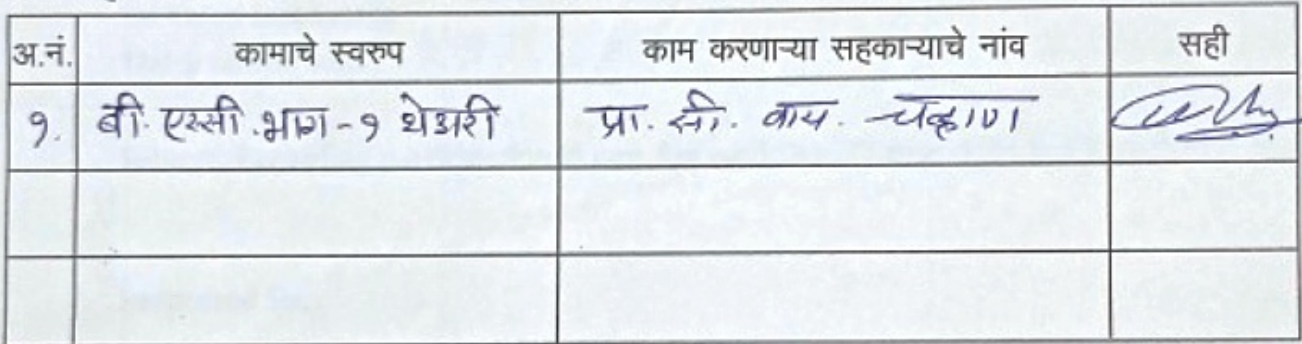 अ.नं. कामाचे स्वरुप काम करणाऱ्या सहकाऱ्याचे नांव सही
१. बी. एस्सी. भाग - १ थेअरी प्रा. सी. वाय. चव्हाण